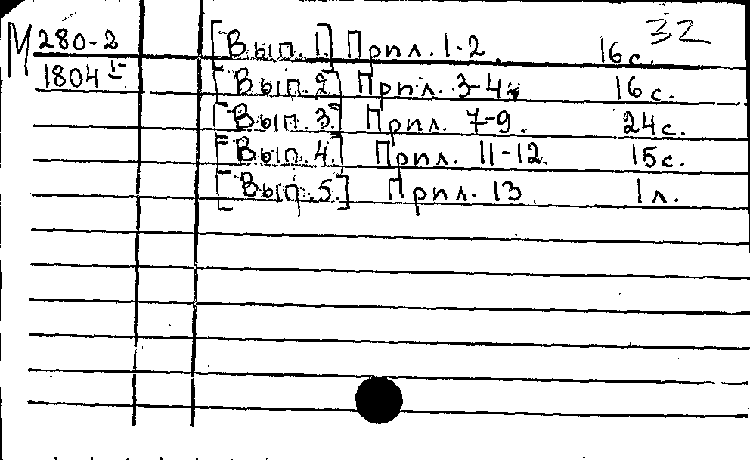 32
М 280-2 [Вып. 1] Прпл. 1-2. 16 с.
1804 [Вып. 2] Прпл. 3-4. 16 с.
[Вып. 3] Прпл. 7-9. 24 с.
[Вып. 4.] Прпл. 11-12. 15 с.
[Вып. 5.] Прпл. 13 1 л.